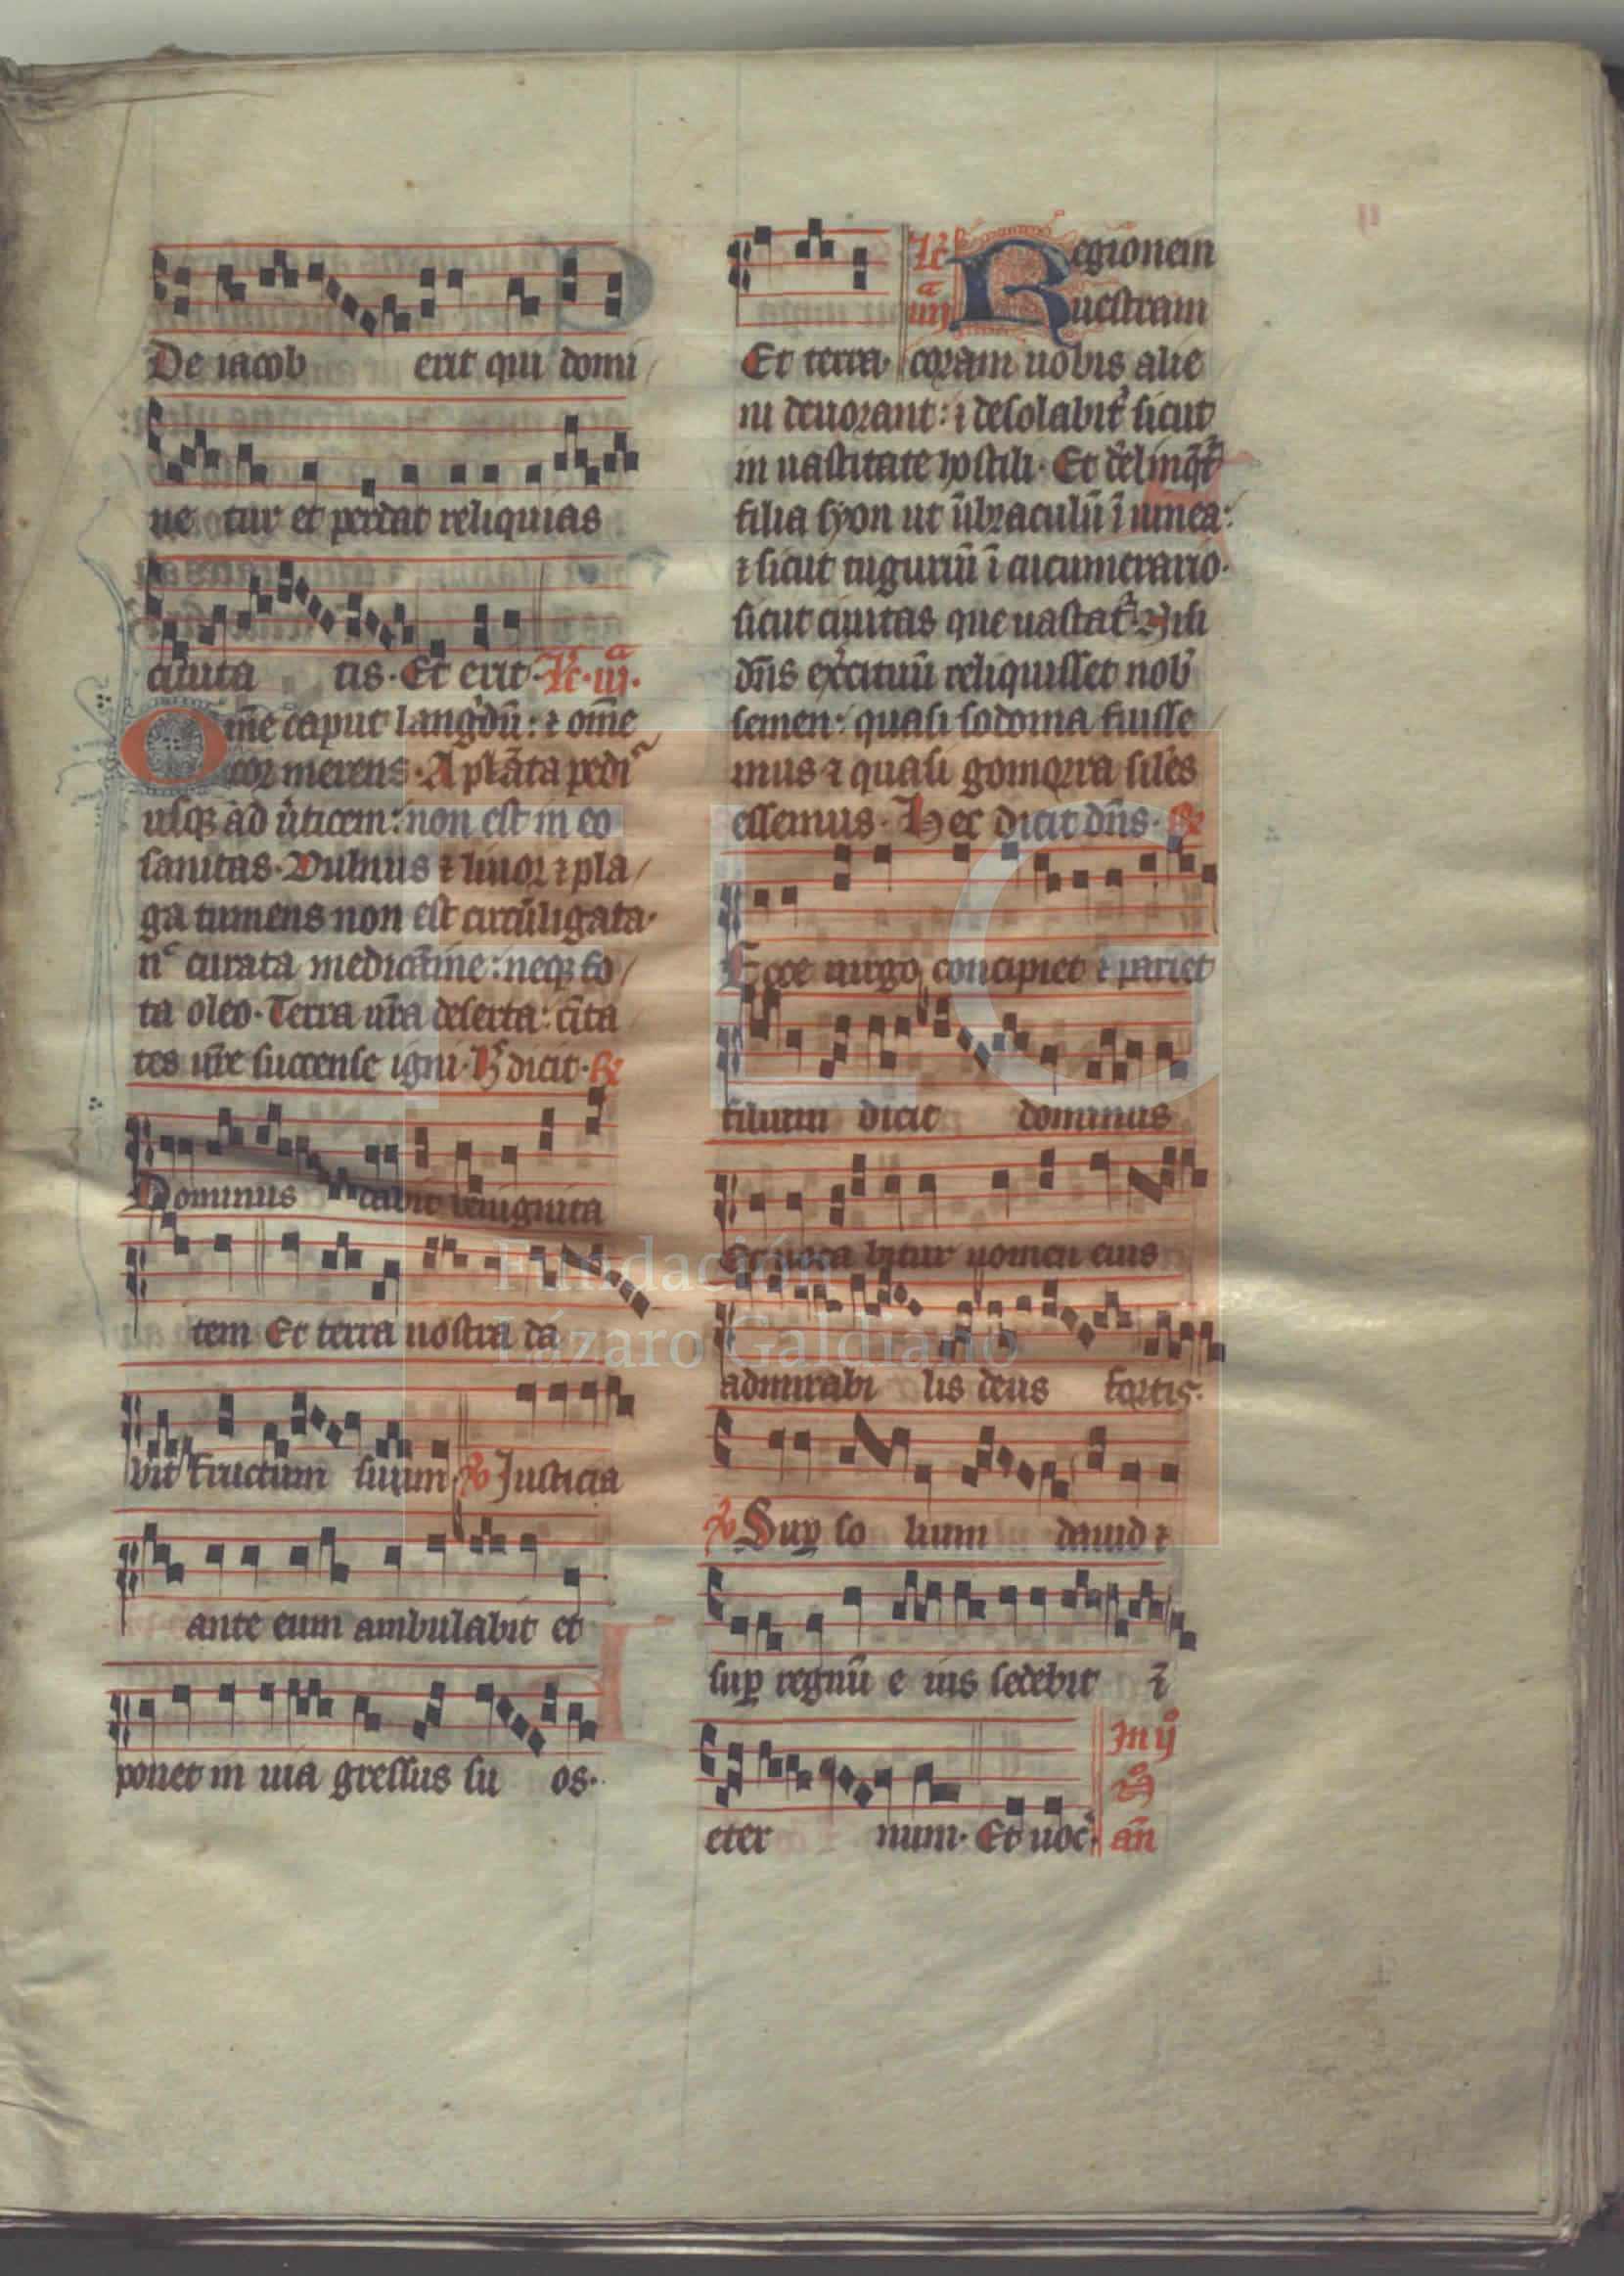 De iacob erit qui domi/
ne tur et perdat reliquias
ciuita tis. Et erit. Lc. iij.a
Om̄e caput langͥdū: ⁊ om̄e
cor merens. A plāta pedi
usqꝫ ad ůticem: non est in eo
sanitas. Vulnus ⁊ liuor ⁊ pla/
ga tumens non est circūligata.
nᶜ curata medicāmine: neqꝫ fo/
ta oleo. Terra ur̄a deserta: ciīta
tes ur̄e succense igni. Hᶜ dicit. ℟
Dominus dabit benignita
tem Et terra nostra da
bit fructum suum. ℣ Justicia
ante eum ambulabit et
ponet in uia gressus su os.
Et terra.
Lc iiij.a
Regionem
uestram
coram uobis alie
ni deuorant: ⁊ desolabit᷑ sicut
in uastitate hostili. Et derelinq̄t᷑
filia syon ut ūbraculū ī uinea:
⁊ sicut tuguriū ī cucumerario.
sicut ciuitas que uastat᷑. Nisi
dn̄s exercituū reliquisset nob᷑
semen: quasi sodoma fuisse
mus ⁊ quasi gomorra siles
essemus. Hec dicit dn̄s. ℟
Ecce uirgo concipiet ⁊ pariet
filium dicit dominus
Et uoca bitur nomen eius
admirabi lis deus fortis.
℣ Suꝑ so lium dauid ⁊
suꝑ regnū e ius sedebit ī
eter num. Et uoc᷑.
In ijº
Nº
an̄
FLG
Fundación
Lázaro Galdiano